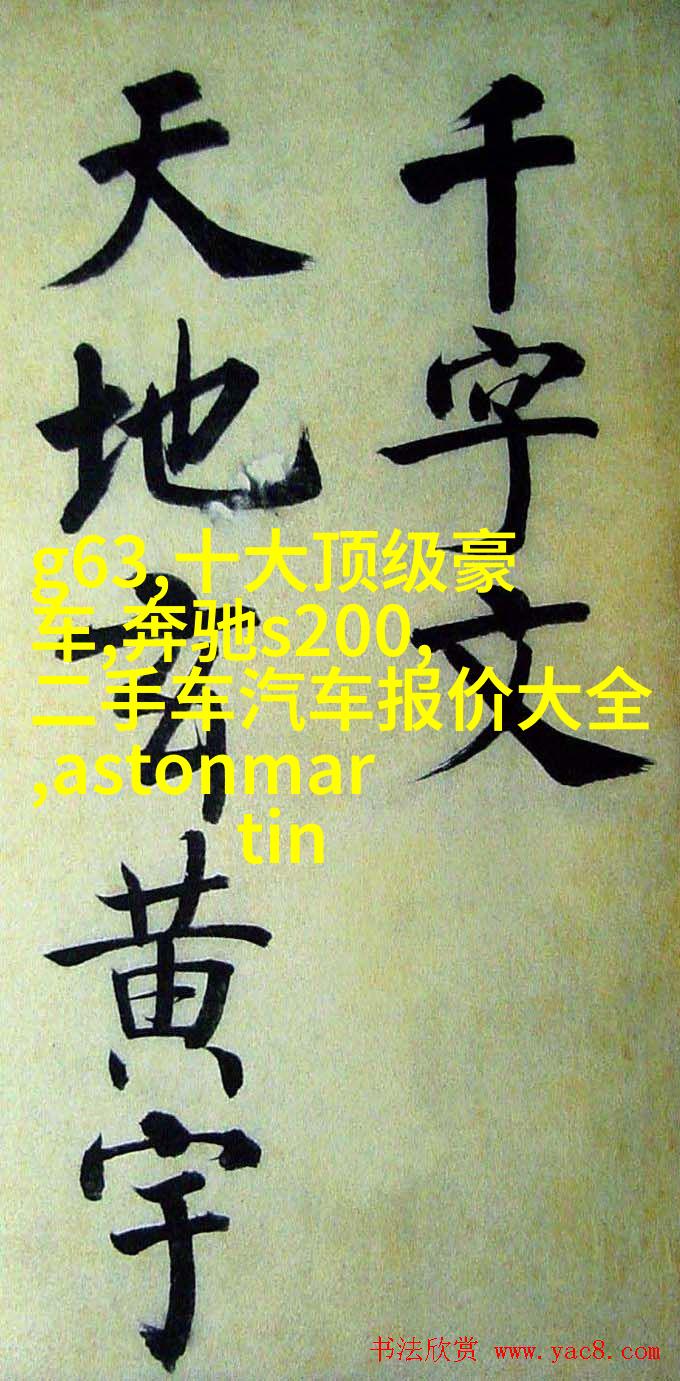 千字文
天地玄黄宇
g63,十大顶级豪
车,奔驰s200,
二手车汽车报价大全
,astonmar
tin
书法欣赏 www.yac8.com